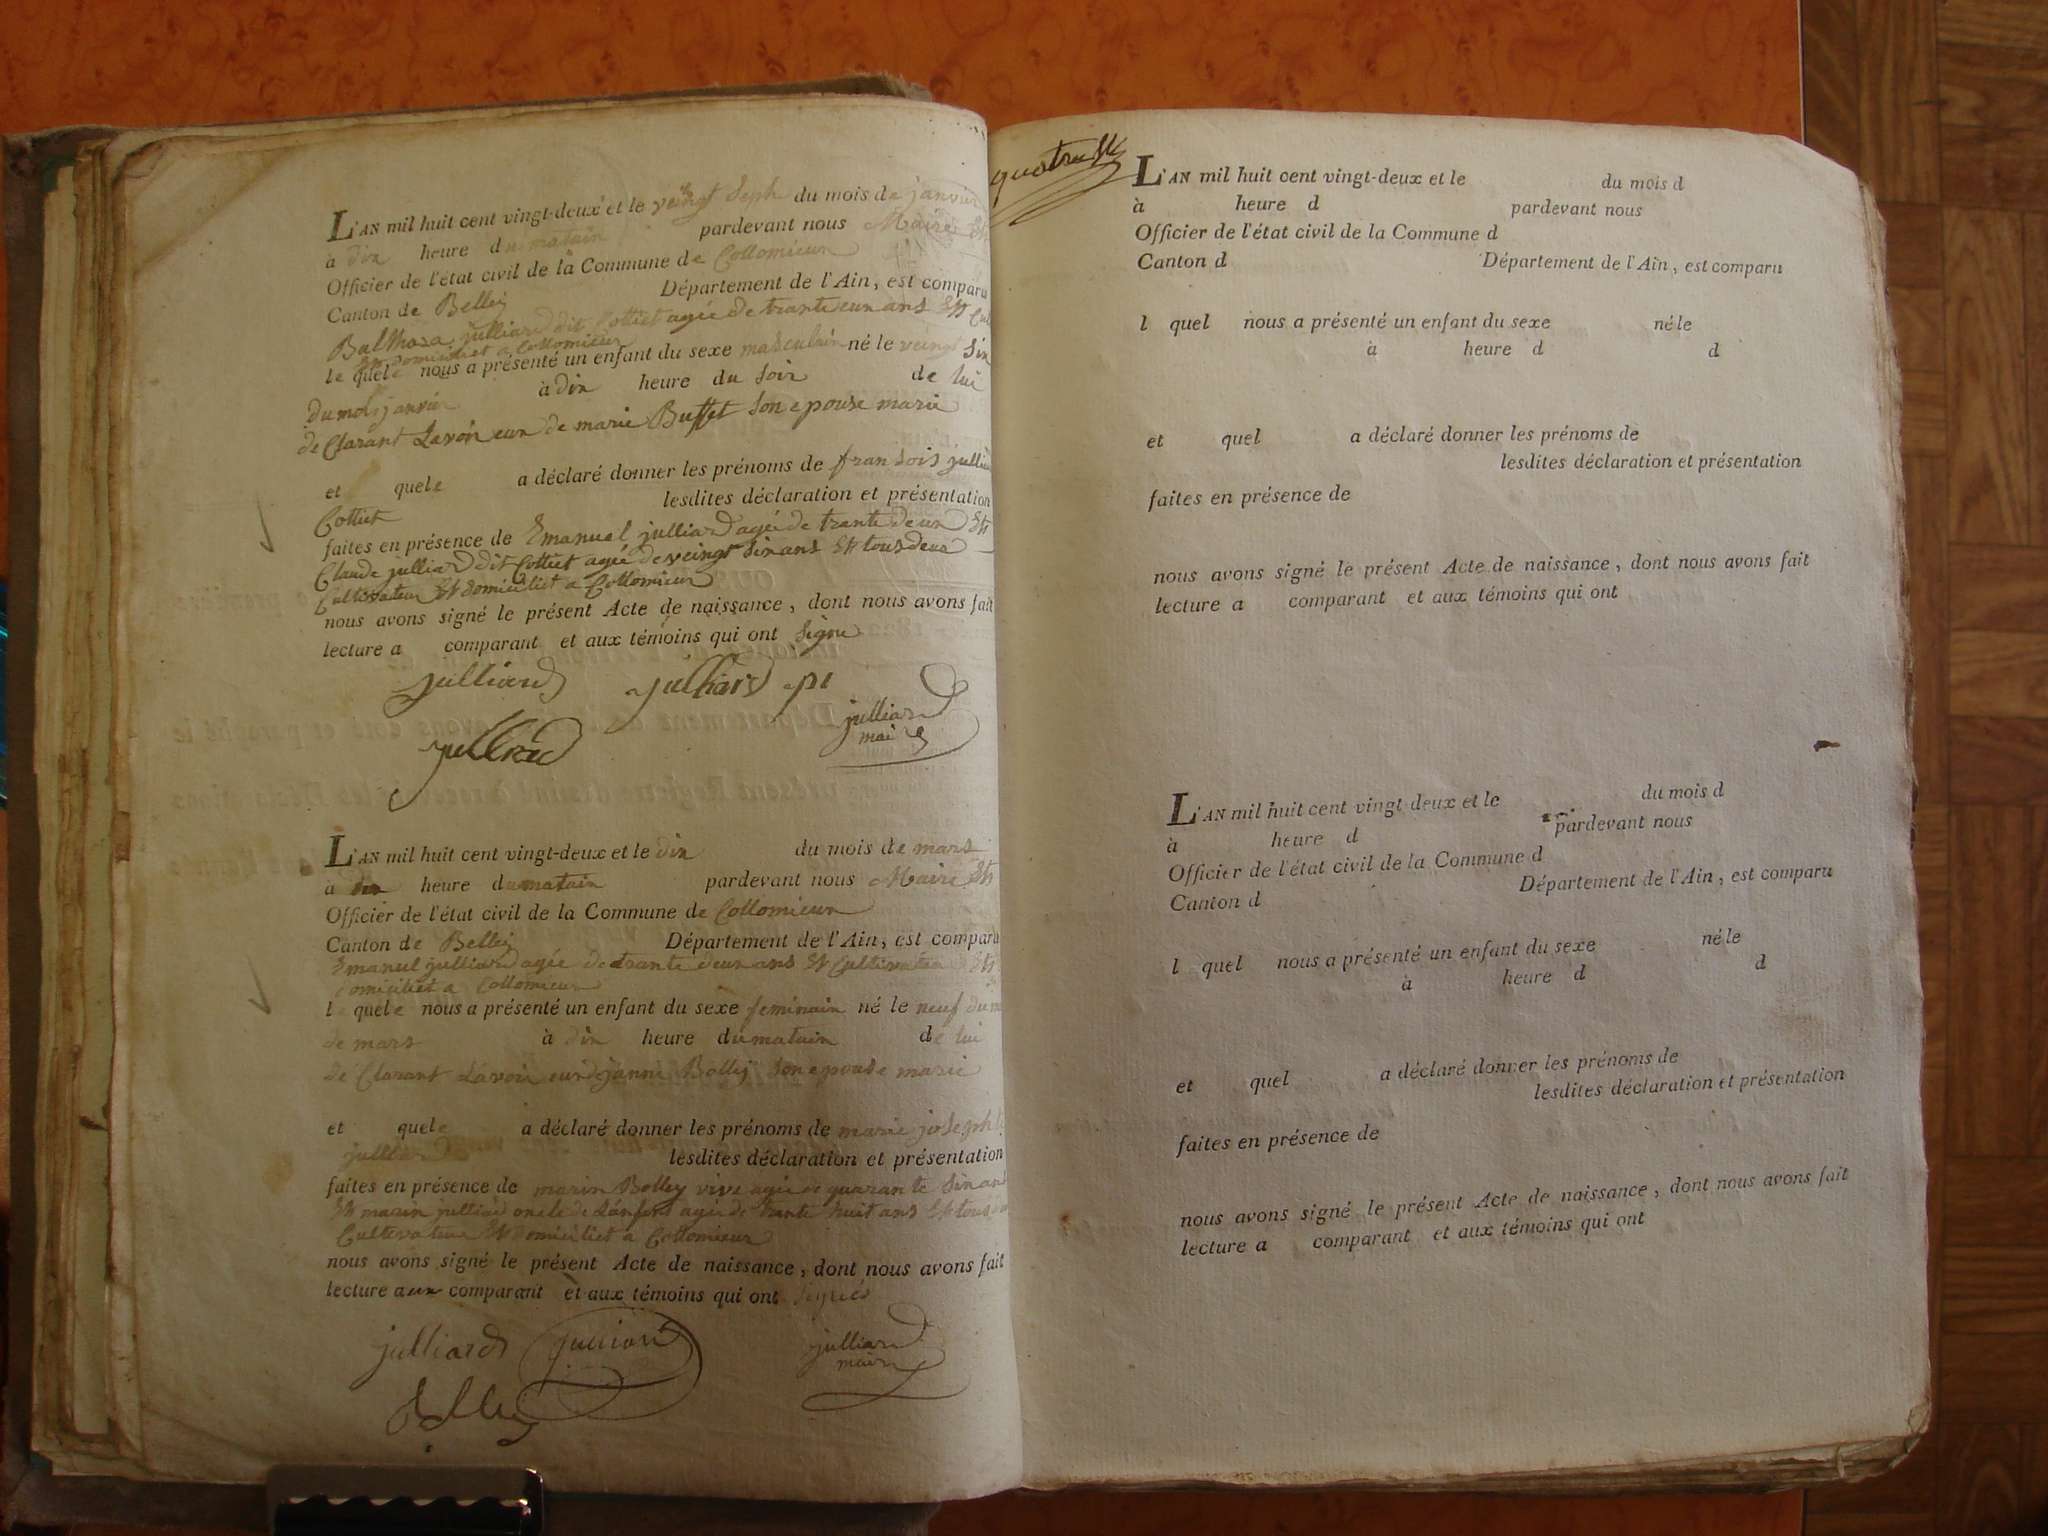 L'AN mil huit cent vingt-deux et le veingt Seph du mois de janvier
à din heure du matain pardevant nous Maire Et
Officier de l'état civil de la Commune de Collomieux
Canton de Belley Département de l'Ain, est comparu
Balthasa julliard dit Cottiet agée de trante eun ans Et Cul
domicidiet a Collomieux
le quele nous a présenté un enfant du sexe masculain né le veingt Sin
du mois janvier à din heure du Soir de lui
de Clarant Lavoir eun de marie Buffet Son epouse marie
et quele a déclaré donner les prénoms de fransois jullia
Cottiet lesdites déclaration et présentation
faites en présence de Emanuel julliard agée de trante de un Et
Claude julliard dit Cottiet agée de veingt Sin ans Et tous deux
Cultivateur Et domiciliet a Collomieux
nous avons signé le présent Acte de naissance, dont nous avons fait
lecture a comparant et aux témoins qui ont Signe
julliard julliard
julliard
maire
julliard
L'AN mil huit cent vingt-deux et le din du mois de mars
à din heure du matain pardevant nous Maire Et
Officier de l'état civil de la Commune de Collomieux
Canton de Belley Département de l'Ain, est comparu
Emanuel julliard agée de trante deun ans Et Cultivateu Et
domiciliet a Collomieux
le quele nous a présenté un enfant du sexe feminain né le neuf du m
de mars à din heure du matain de lui
de Clarant Lavoir eun de janne Bolley Son epouse marie
et quele a déclaré donner les prénoms de marie joseph
julliard lesdites déclaration et présentation
faites en présence de marin Bolley vive agée de quarante Sin ans
Et marin julliard oncle de Lanfant agée de trante huit ans Et tous
Cultivateur Et domiciliet a Collomieux
nous avons signé le présent Acte de naissance, dont nous avons fait
lecture aux comparant et aux témoins qui ont Signés
julliard julliard julliard
maire
Bolley
L'AN mil huit cent vingt-deux et le du mois d
à heure d pardevant nous
Officier de l'état civil de la Commune d
Canton d Département de l'Ain, est comparu
l quel nous a présenté un enfant du sexe né le
à heure d d
et quel a déclaré donner les prénoms de
lesdites déclaration et présentation
faites en présence de
nous avons signé le présent Acte de naissance, dont nous avons fait
lecture a comparant et aux témoins qui ont
L'AN mil huit cent vingt-deux et le du mois d
à heure d pardevant nous
Officier de l'état civil de la Commune d
Canton d Département de l'Ain, est comparu
l quel nous a présenté un enfant du sexe né le
à heure d d
et quel a déclaré donner les prénoms de
lesdites déclaration et présentation
faites en présence de
nous avons signé le présent Acte de naissance, dont nous avons fait
lecture a comparant et aux témoins qui ont